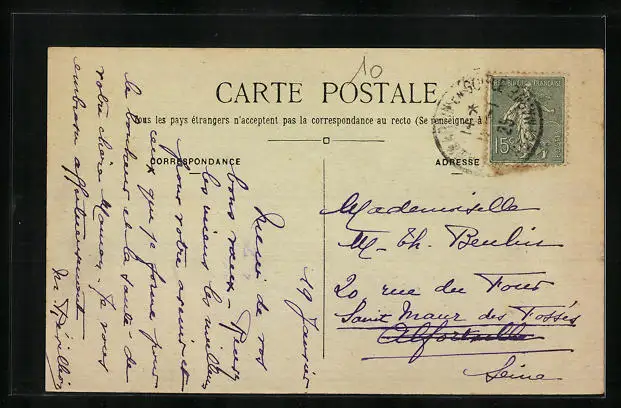 10
CARTE POSTALE
Tous les pays étrangers n'acceptent pas la correspondance au recto (Se renseigner à
CORRESPONDANCE
ADRESSE
RÉPUBLIQUE FRANÇAISE
15c
25
19 Janvier
Merci de vos
bons vœux - 
les miens les meilleurs
pour votre avenir et
ceux que je forme pour
le bonheur et la santé de
votre chère Maman. Je vous
embrasse affectueusement
Mademoiselle
M-Th. Beulin
20 rue du Four
Saint Maur des Fossés
Alfortville
Seine